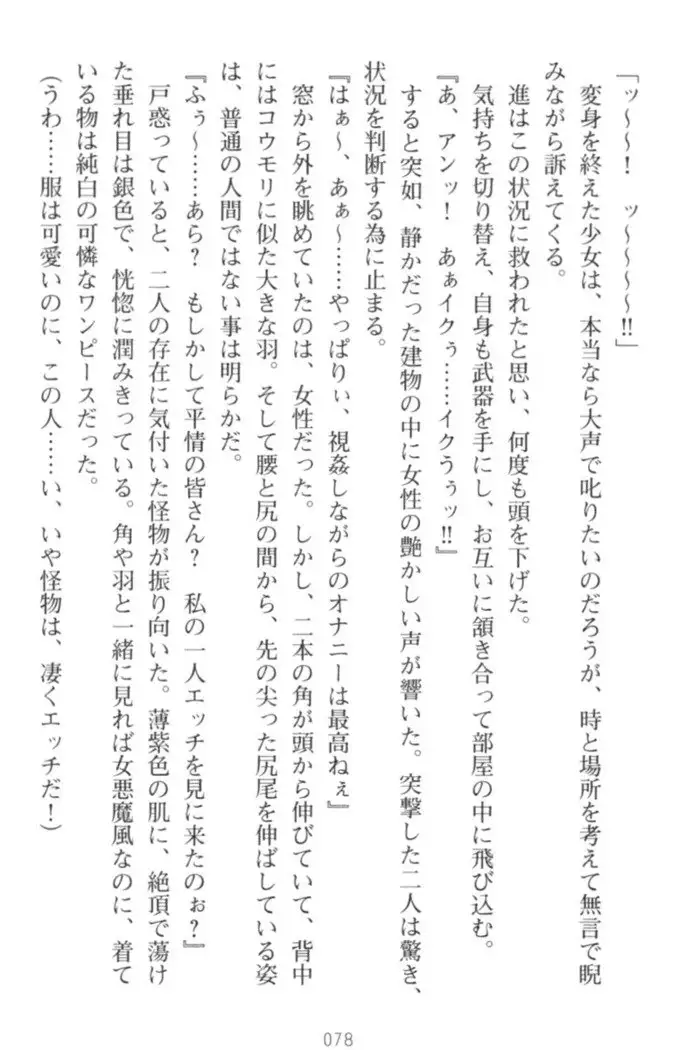 「ッ～～！　ッ～～～～‼」
　変身を終えた少女は、本当なら大声で叱りたいのだろうが、時と場所を考えて無言で睨
みながら訴えてくる。
　進はこの状況に救われたと思い、何度も頭を下げた。
　気持ちを切り替え、自身も武器を手にし、お互いに頷き合って部屋の中に飛び込む。
『あ、アンッ！　あぁイクぅ……イクうぅッ‼』
　すると突如、静かだった建物の中に女性の艶かしい声が響いた。突撃した二人は驚き、
状況を判断する為に止まる。
『はぁ～、あぁ～……やっぱりぃ、視姦しながらのオナニーは最高ねぇ』
　窓から外を眺めていたのは、女性だった。しかし、二本の角が頭から伸びていて、背中
にはコウモリに似た大きな羽。そして腰と尻の間から、先の尖った尻尾を伸ばしている姿
は、普通の人間ではない事は明らかだ。
『ふぅ～……あら？　もしかして平情の皆さん？　私の一人エッチを見に来たのぉ？』
　戸惑っていると、二人の存在に気付いた怪物が振り向いた。薄紫色の肌に、絶頂で蕩け
た垂れ目は銀色で、恍惚に潤みきっている。角や羽と一緒に見れば女悪魔風なのに、着て
いる物は純白の可憐なワンピースだった。
（うわ……服は可愛いのに、この人……い、いや怪物は、凄くエッチだ！）
078